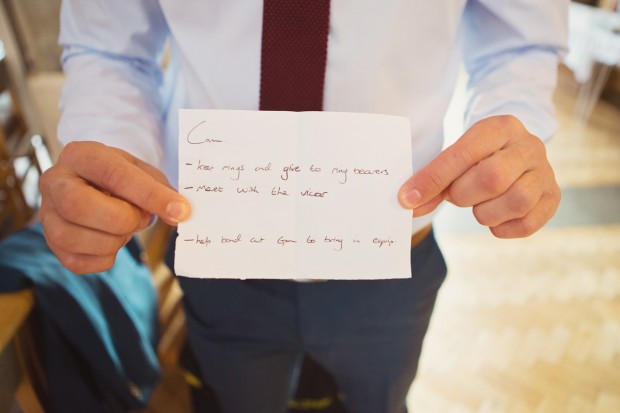 Cam
- keep rings and give to ring bearers
- Meet with the vicar
- help band at 6pm to bring in equip.